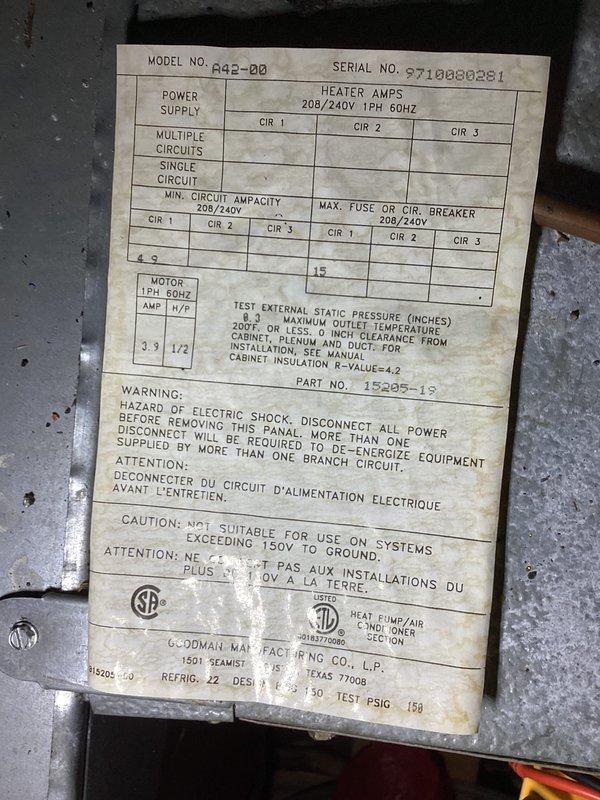 MODEL NO. A42-00 SERIAL NO. 9710080281
POWER SUPPLY
HEATER AMPS
208/240V 1PH 60HZ
CIR 1 CIR 2 CIR 3
MULTIPLE CIRCUITS
SINGLE CIRCUIT
MIN. CIRCUIT AMPACITY
208/240V
MAX. FUSE OR CIR. BREAKER
208/240V
CIR 1 CIR 2 CIR 3 CIR 1 CIR 2 CIR 3
4 9
15
MOTOR
1PH 60HZ
AMP H/P
3.9 1/2
TEST EXTERNAL STATIC PRESSURE (INCHES)
0.3 MAXIMUM OUTLET TEMPERATURE
200°F. OR LESS. 0 INCH CLEARANCE FROM
CABINET, PLENUM AND DUCT. FOR
INSTALLATION, SEE MANUAL
CABINET INSULATION R-VALUE=4.2
PART NO. 15205-19
WARNING:
HAZARD OF ELECTRIC SHOCK. DISCONNECT ALL POWER
BEFORE REMOVING THIS PANAL. MORE THAN ONE
DISCONNECT WILL BE REQUIRED TO DE-ENERGIZE EQUIPMENT
SUPPLIED BY MORE THAN ONE BRANCH CIRCUIT.
ATTENTION:
DECONNECTER DU CIRCUIT D'ALIMENTATION ELECTRIQUE
AVANT L'ENTRETIEN.
CAUTION: NOT SUITABLE FOR USE ON SYSTEMS
EXCEEDING 150V TO GROUND.
ATTENTION: NE PAS AUX INSTALLATIONS DU
PLUS A LA TERRE.
SA
LISTED
ETL
HEAT PUMP/AIR
CONDITIONER
SECTION
GOODMAN MANUFACTURING CO., L.P.
1501 SEAMIST TEXAS 77008
REFRIG. 22 150 TEST PSIG 150